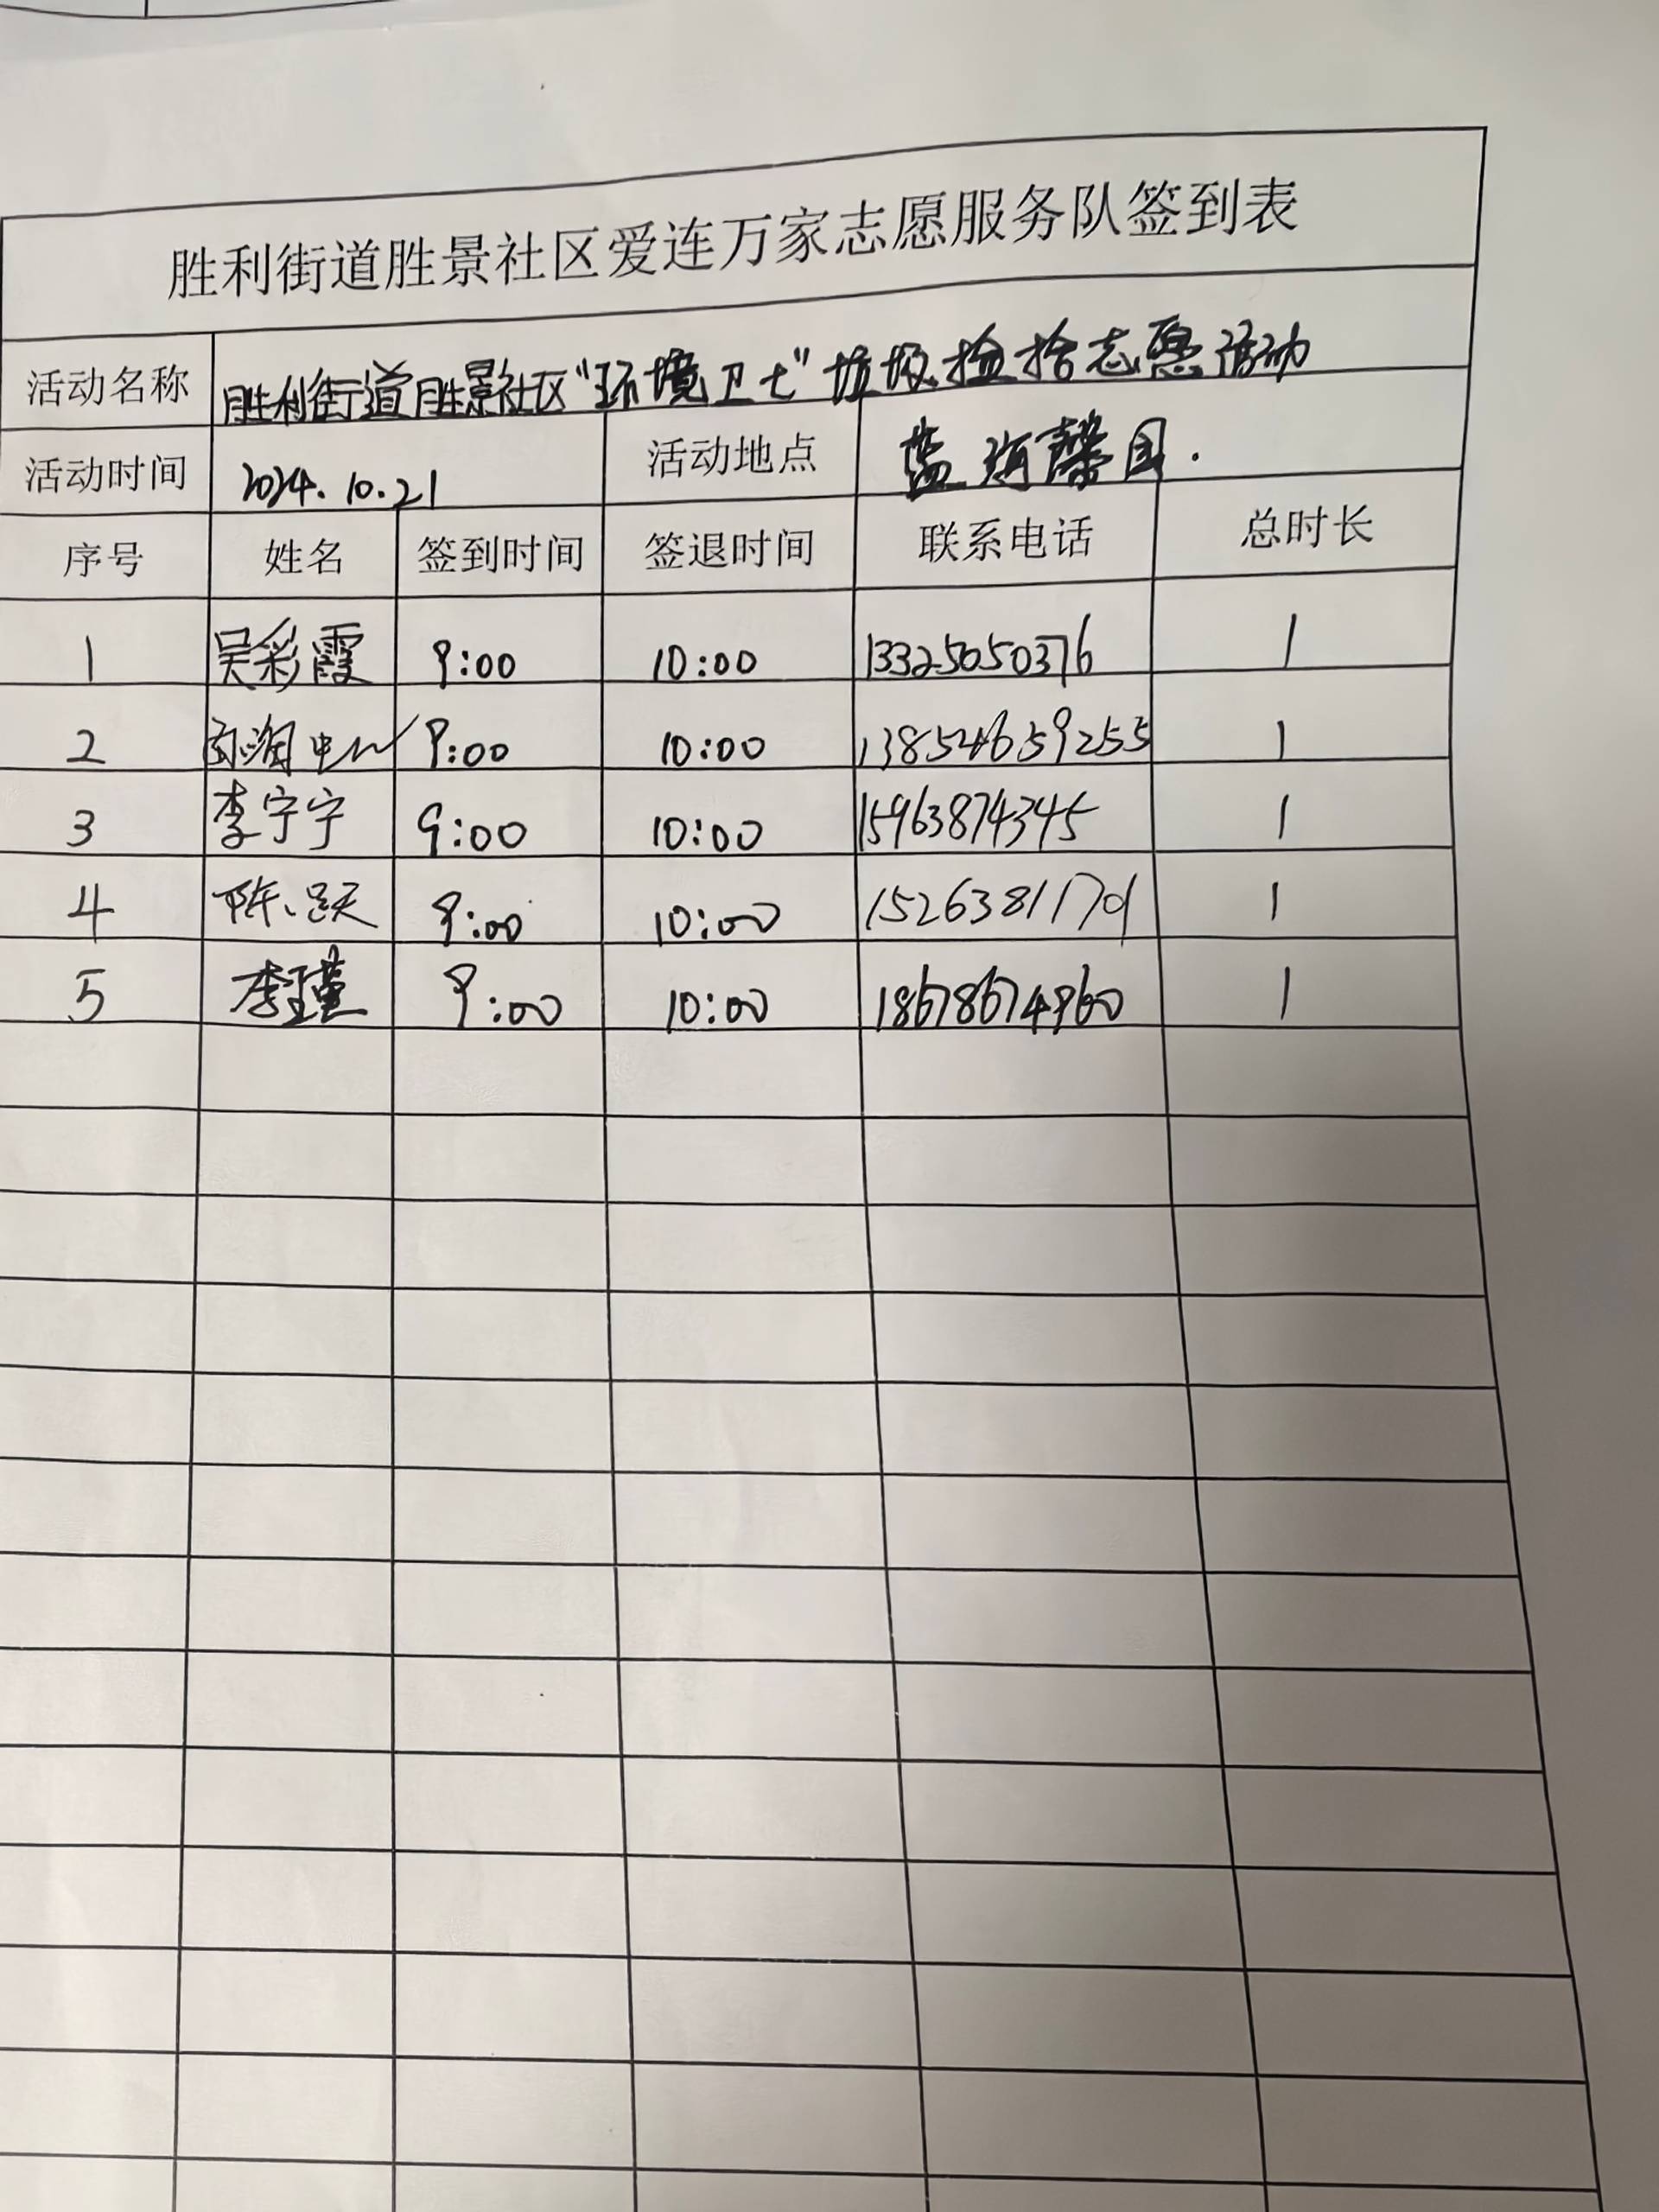 胜利街道胜景社区爱连万家志愿服务队签到表
活动名称 胜利街道胜景社区“环境卫士”垃圾捡拾志愿活动
活动时间 2024.10.21 活动地点 蓝海馨园.
序号 姓名 签到时间 签退时间 联系电话 总时长
1 吴彩霞 9:00 10:00 13325050376 1
2 9:00 10:00 13854659255 1
3 李宁宁 9:00 10:00 15963874345 1
4 陈跃 9:00 10:00 15263811701 1
5 李瑾 9:00 10:00 18678674960 1